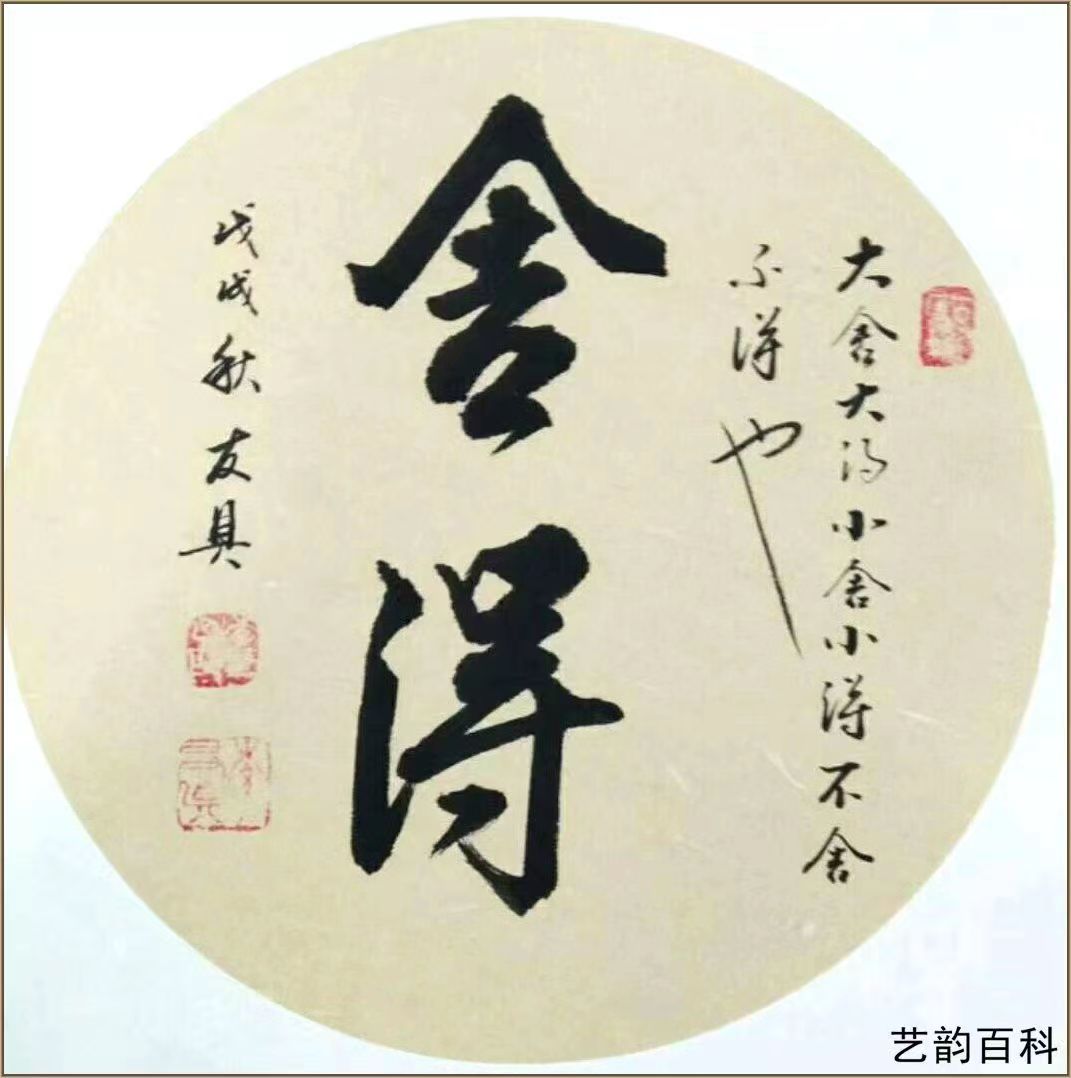 大舍大得小舍小得不舍
不得也
舍得
戊戌秋友具
艺韵百科